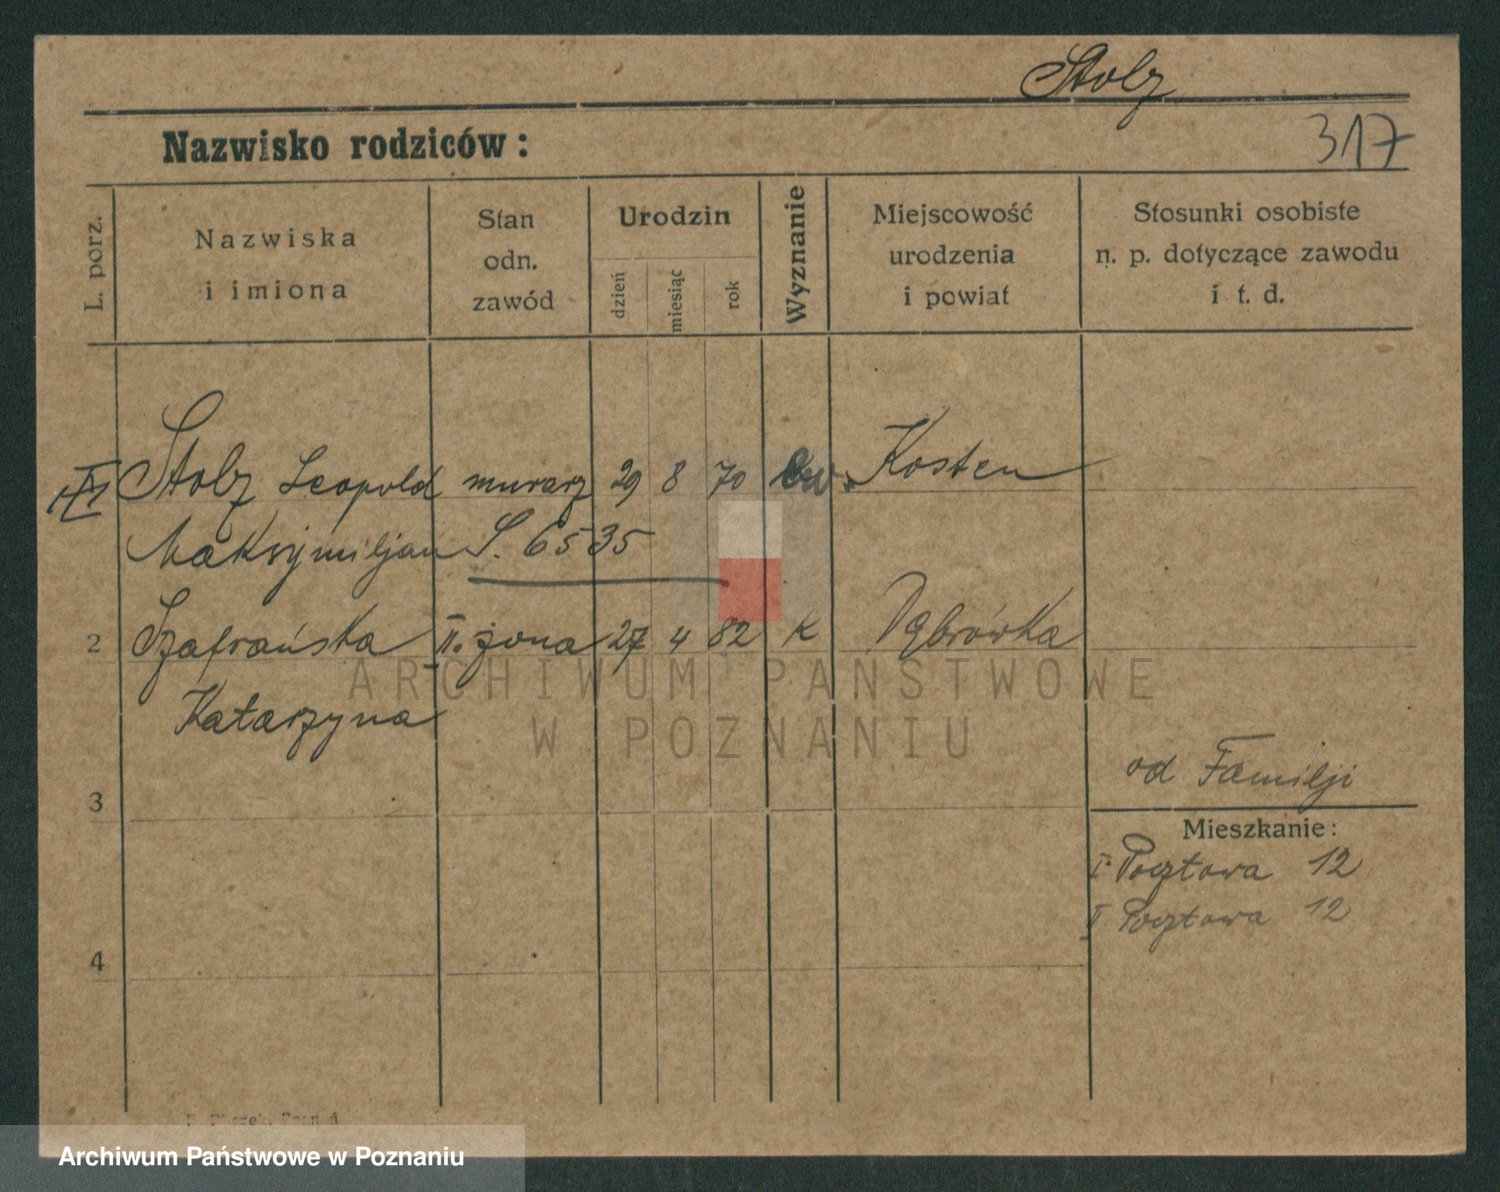 Stolz
Nazwisko rodziców:
317
L. porz.
Nazwiska
i imiona
Stan
odn.
zawód
Urodzin
dzień
miesiąc
rok
Wyznanie
Miejscowość
urodzenia
i powiat
Stosunki osobiste
n. p. dotyczące zawodu
i t. d.
Stolz Leopold murarz 29 8 70 ew. Kosten
Maksymiljan S. 6535
2 Szafrańska II. żona 27 4 82 K Dąbrówka
Katarzyna
ARCHIWUM PAŃSTWOWE
W POZNANIU
od Familji
3
Mieszkanie:
I Pocztowa 12
II Pocztowa 12
4
Archiwum Państwowe w Poznaniu